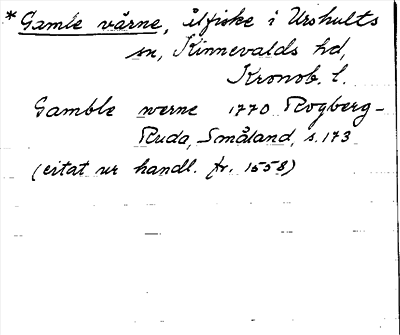 *Gamle värne, ålfiske i Urshults
sn, Kinnevalds hd,
Kronob. l.
Gamble werne 1770 Rogberg-
Ruda, Småland, s. 173
(citat ur handl. fr. 1558)